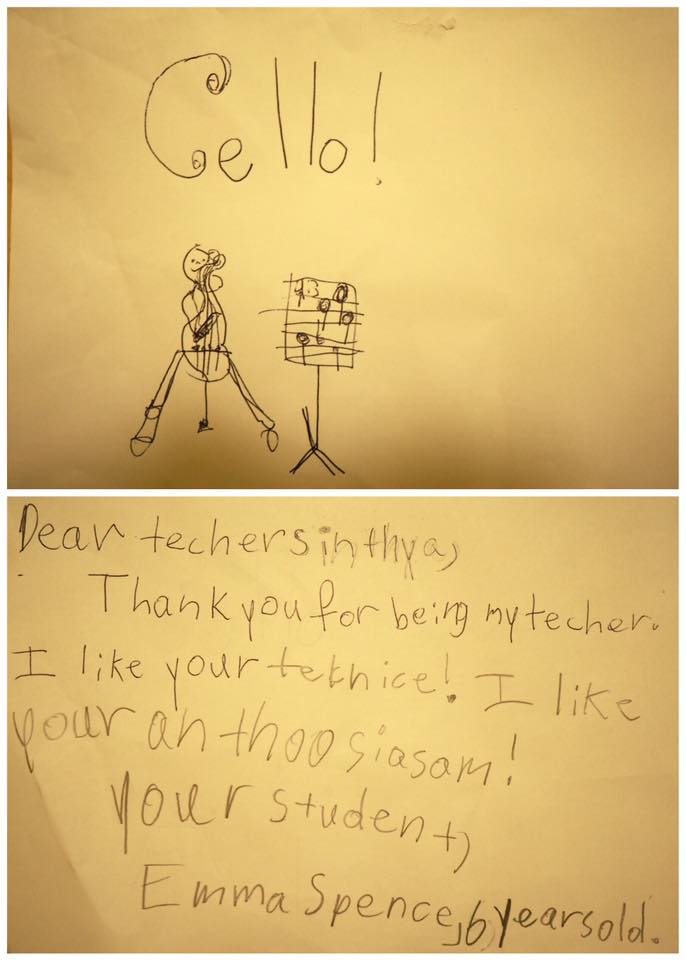 Cello!
Dear techersinthya,
Thank you for being my techer.
I like your teknice! I like
your anthoosiasam!
your student,
Emma Spence, 6 years old.